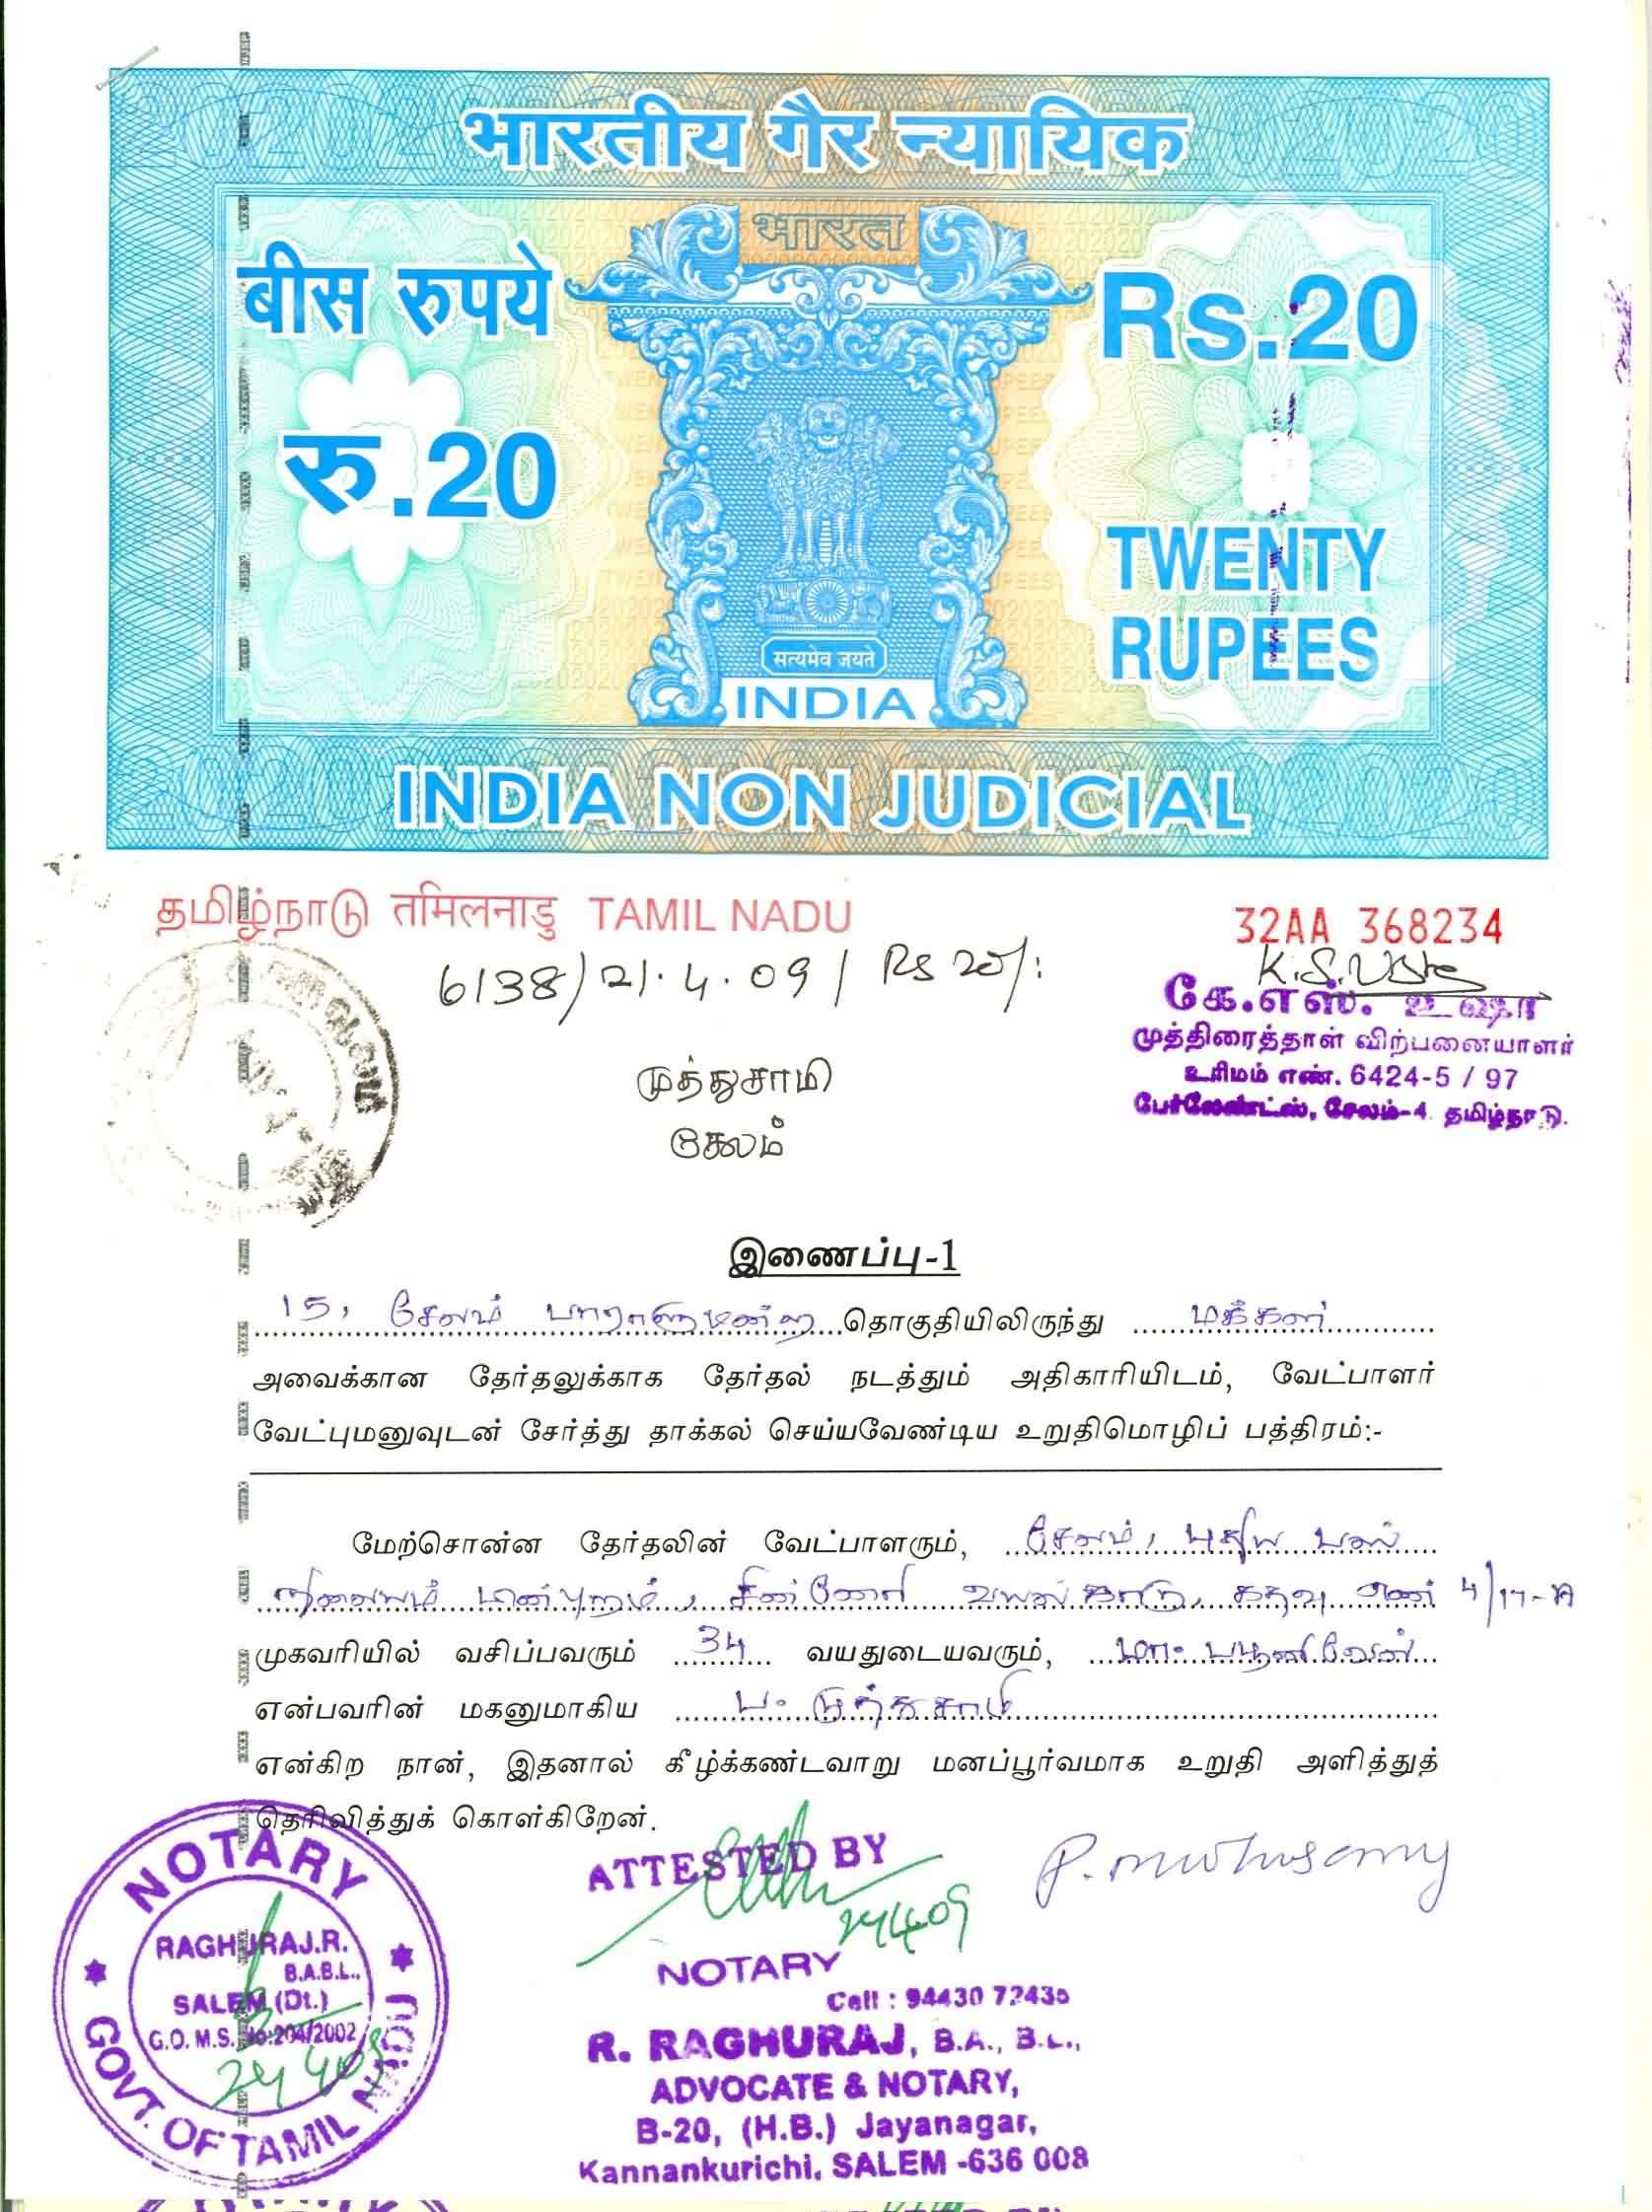 भारतीय गैर न्यायिक
भारत
बीस रुपये
Rs.20
रु.20
TWENTY
RUPEES
सत्यमेव जयते
INDIA
INDIA NON JUDICIAL
தமிழ்நாடு तमिलनाडु TAMIL NADU
32AA 368234
6138/21.4.09/ Rs 20/-
கே.எஸ். உஷா
முத்திரைத்தாள் விற்பனையாளர்
உரிமம் எண். 6424-5 / 97
பேர்லேண்ட்ஸ், சேலம்-4. தமிழ்நாடு.
முத்துசாமி
சேலம்
இணைப்பு-1
15, சேலம் பாராளுமன்ற தொகுதியிலிருந்து மக்கள்
அவைக்கான தேர்தலுக்காக தேர்தல் நடத்தும் அதிகாரியிடம், வேட்பாளர்
வேட்புமனுவுடன் சேர்த்து தாக்கல் செய்யவேண்டிய உறுதிமொழிப் பத்திரம்:-
மேற்சொன்ன தேர்தலின் வேட்பாளரும், சேலம், புதிய பஸ்
நிலையம் பின்புறம், சின்னேரி வயல் காடு, கதவு எண் 4/17-A
முகவரியில் வசிப்பவரும் 34 வயதுடையவரும், மா. பழனிவேல்
என்பவரின் மகனுமாகிய ப. முத்துசாமி
என்கிற நான், இதனால் கீழ்க்கண்டவாறு மனப்பூர்வமாக உறுதி அளித்துத்
தெரிவித்துக் கொள்கிறேன்.
P. Muthusamy
ATTESTED BY
24/4/09
NOTARY
Cell : 94430 72435
R. RAGHURAJ, B.A., B.L.,
ADVOCATE & NOTARY,
B-20, (H.B.) Jayanagar,
Kannankurichi, SALEM -636 008
NOTARY
RAGHURAJ.R.
B.A.B.L.,
SALEM (Dt.)
G.O. M.S. No:204/2002
24/4/09
GOVT. OF TAMIL NADU